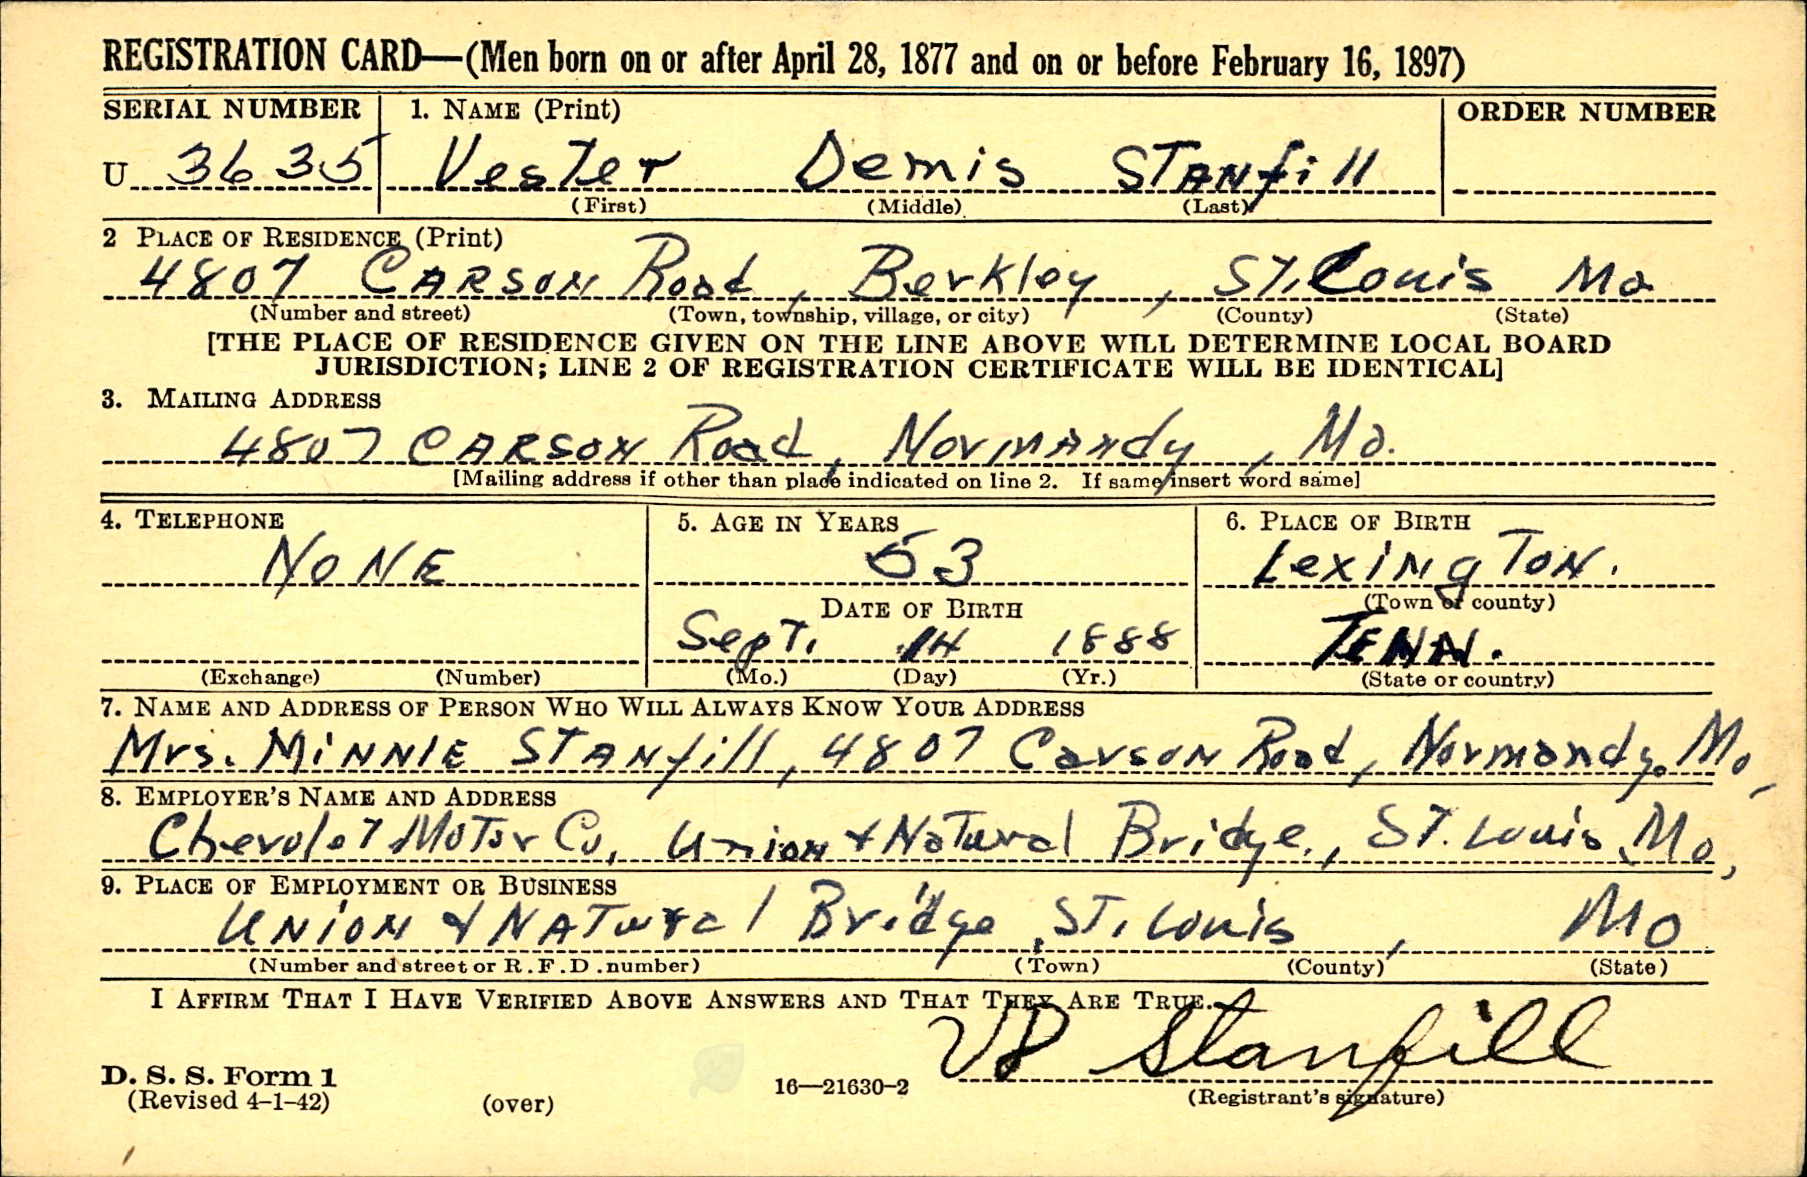 REGISTRATION CARD—(Men born on or after April 28, 1877 and on or before February 16, 1897)
SERIAL NUMBER 1. NAME (Print) ORDER NUMBER
U 3635 Vester Demis Stanfill
(First) (Middle) (Last)
2 PLACE OF RESIDENCE (Print)
4807 Carson Road, Berkley, St. Louis Mo
(Number and street) (Town, township, village, or city) (County) (State)
[THE PLACE OF RESIDENCE GIVEN ON THE LINE ABOVE WILL DETERMINE LOCAL BOARD
JURISDICTION; LINE 2 OF REGISTRATION CERTIFICATE WILL BE IDENTICAL]
3. MAILING ADDRESS
4807 Carson Road, Normandy, Mo.
[Mailing address if other than place indicated on line 2. If same insert word same]
4. TELEPHONE 5. AGE IN YEARS 6. PLACE OF BIRTH
NONE 53 Lexington.
DATE OF BIRTH (Town or county)
Sept. 14 1888 Tenn.
(Exchange) (Number) (Mo.) (Day) (Yr.) (State or country)
7. NAME AND ADDRESS OF PERSON WHO WILL ALWAYS KNOW YOUR ADDRESS
Mrs. Minnie Stanfill, 4807 Carson Road, Normandy, Mo,
8. EMPLOYER'S NAME AND ADDRESS
Chevolet Motor Co, Union & Natural Bridge, St. Louis, Mo,
9. PLACE OF EMPLOYMENT OR BUSINESS
Union & Natural Bridge, St. Louis, Mo
(Number and street or R.F.D. number) (Town) (County) (State)
I AFFIRM THAT I HAVE VERIFIED ABOVE ANSWERS AND THAT THEY ARE TRUE.
VD Stanfill
D. S. S. Form 1
(Revised 4-1-42) (over) 16—21630-2 (Registrant's signature)